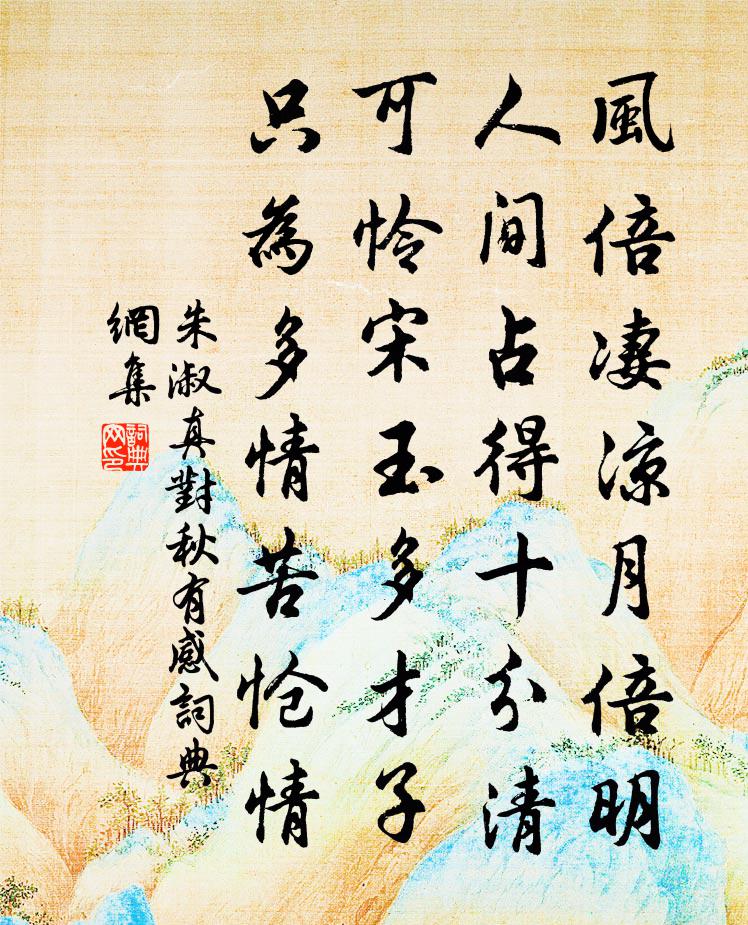 風倍凄涼月倍明
人間占得十分清
可怜宋玉多才子
只為多情苦怆情
朱淑真對秋有感詞典
網集
詞典
网印